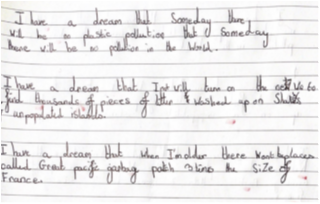 I have a dream that Someday there
will be no plastic pollution that Someday
there will be no pollution in the World.
I have a dream that I will turn on the
find thousands of pieces of litter washed up on
unpopulated islands.
I have a dream that when I'm older there wont be places
called Great pacific garbag patch 3 times the Size of
France.